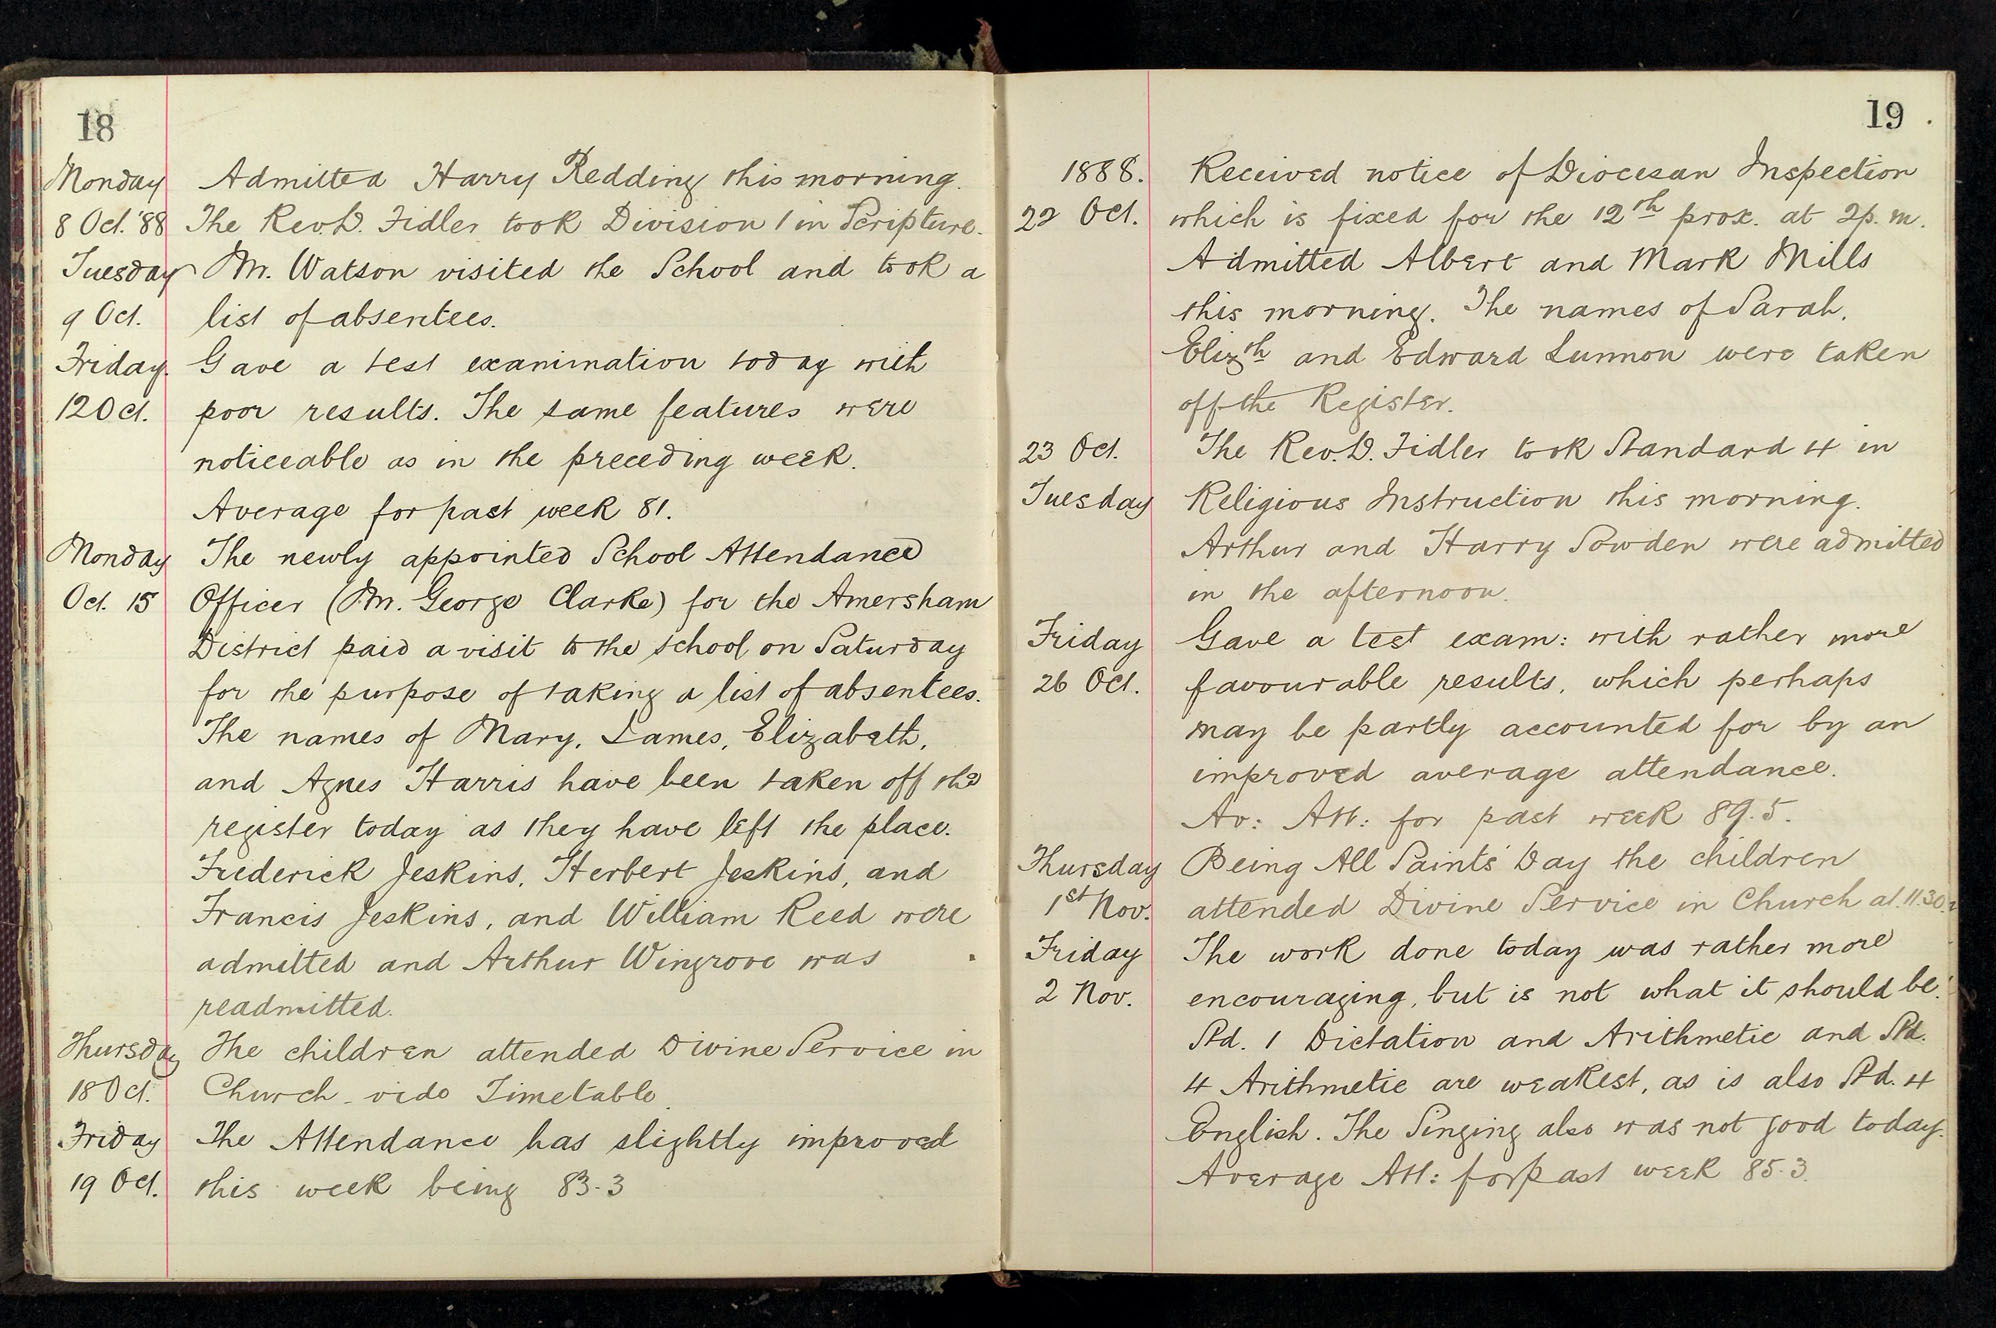 18
Monday Admitted Harry Redding this morning.
8 Oct. '88 The Rev. D. Fidler took Division 1 in Scripture.
Tuesday Mr. Watson visited the School and took a
9 Oct. list of absentees.
Friday. Gave a test examination today with
12 Oct. poor results. The same features were
noticeable as in the preceding week.
Average for past week 81.
Monday The newly appointed School Attendance
Oct. 15 Officer (Mr. George Clarke) for the Amersham
District paid a visit to the school on Saturday
for the purpose of taking a list of absentees.
The names of Mary, James, Elizabeth,
and Agnes Harris have been taken off the
register today as they have left the place.
Frederick Jeskins, Herbert Jeskins, and
Francis Jeskins, and William Reed were
admitted and Arthur Wingrove was
readmitted.
Thursday The children attended Divine Service in
18 Oct. Church - vide Timetable.
Friday The Attendance has slightly improved
19 Oct. this week being 83.3
19
1888. Received notice of Diocesan Inspection
22 Oct. which is fixed for the 12th prox. at 2 p.m.
Admitted Albert and Mark Mills
this morning. The names of Sarah,
Elizth and Edward Lunnon were taken
off the Register.
23 Oct. The Rev. D. Fidler took Standard 4 in
Tuesday Religious Instruction this morning.
Arthur and Harry Sowden were admitted
in the afternoon.
Friday Gave a test exam: with rather more
26 Oct. favourable results, which perhaps
may be partly accounted for by an
improved average attendance.
Av: Att: for past week 89.5.
Thursday Being All Saints' Day the children
1st Nov. attended Divine Service in Church at 11.30.
Friday The work done today was rather more
2 Nov. encouraging, but is not what it should be.
Std. 1 Dictation and Arithmetic and Std.
4 Arithmetic are weakest, as is also Std. 4
English. The Singing also was not good today.
Average Att: for past week 85.3.